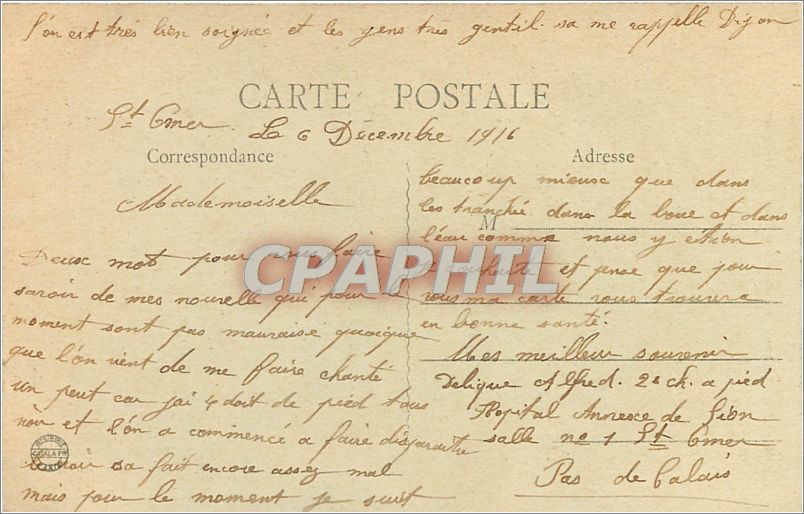 l'on est très bien soignée et les gens très gentil. sa me rappelle Dijon
CARTE POSTALE
St Omer. Le 6 Décembre 1916
Correspondance
Mademoiselle
Deux mot pour vous faire
savoir de mes nouvelle qui pour le
moment sont pas mauraise quoique
que l'on vient de me faire chanté
un peut car jai 4 doit de pied tous
noir et l'on a commencé a faire disparaitre
noir sa fait encore assez mal
mais pour le moment je suit
Adresse
beaucoup mieux que dans
les tranché dans la boue et dans
M
l'eau comme nous y étion
souhaite et pense que pour
vous ma carte vous trouvera
en bonne santé.
Mes meilleur souvenir
Delique Alfred. 2e ch. a pied
Hopital Annexe de Lion
salle no 1 St Omer
Pas de Calais
CPAPHIL